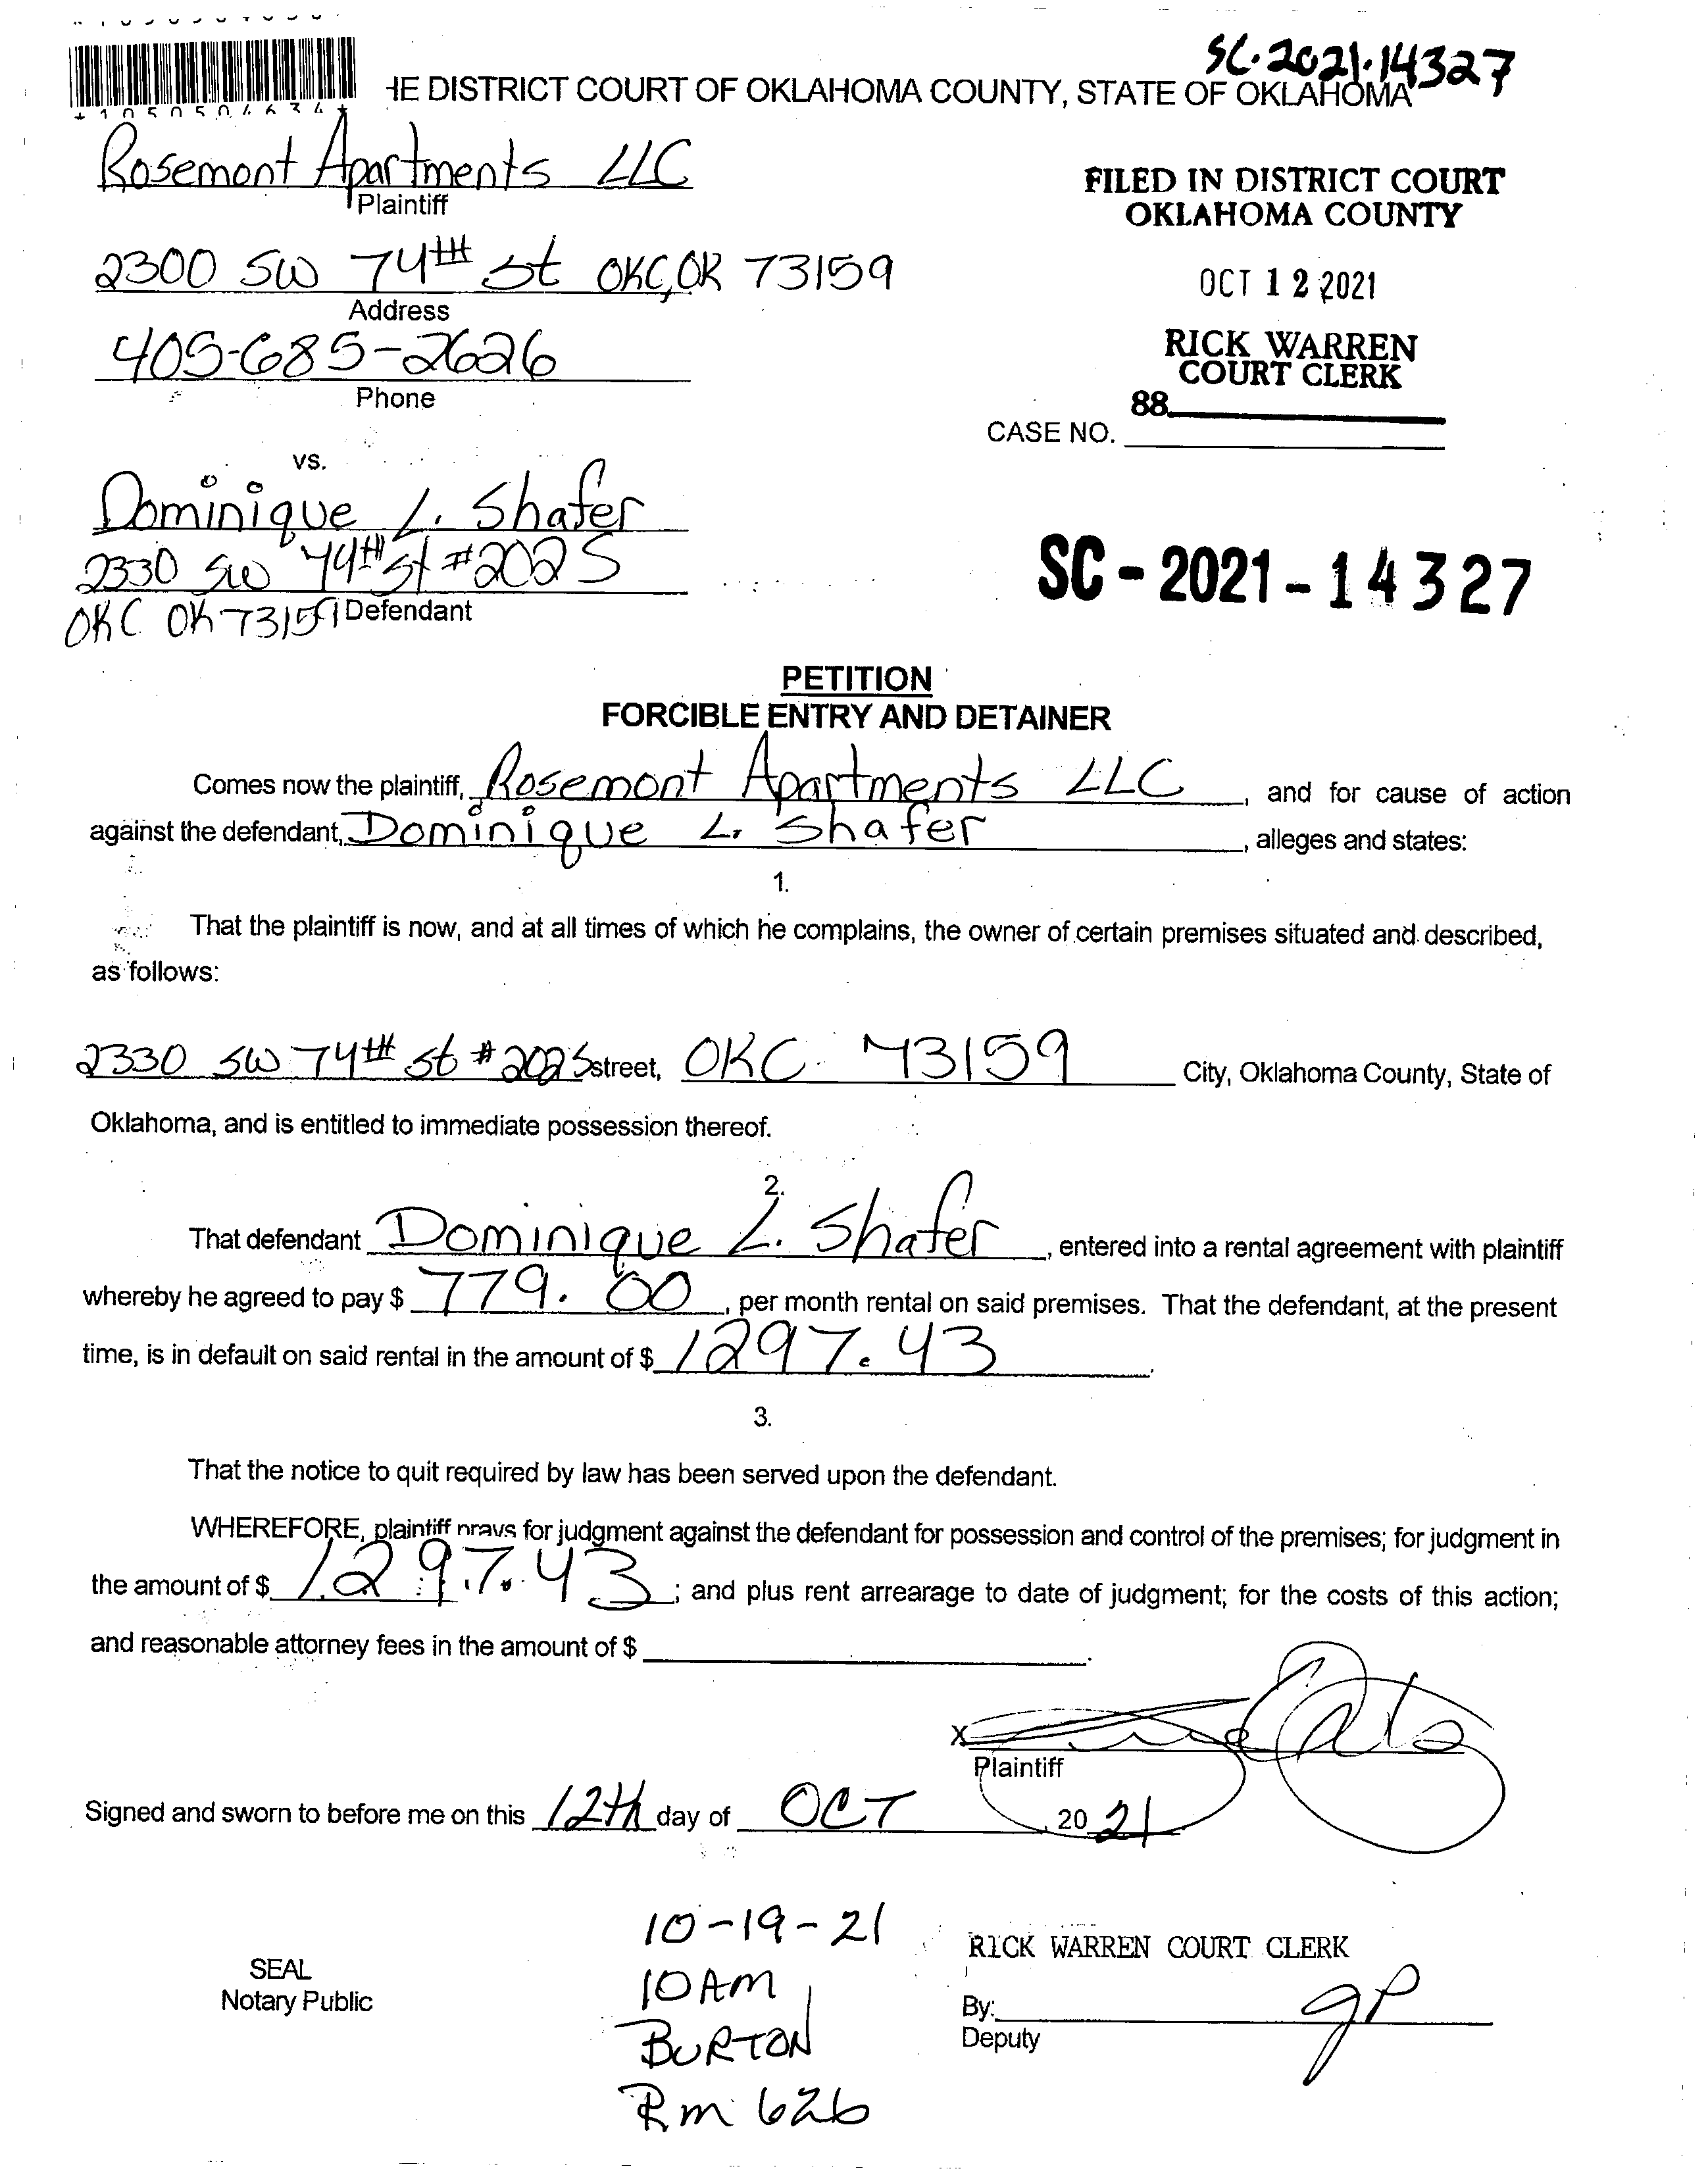 SC-2021-14327
HE DISTRICT COURT OF OKLAHOMA COUNTY, STATE OF OKLAHOMA
*1050504634*
Rosemont Apartments LLC
Plaintiff
2300 SW 74TH St OKC, OK 73159
Address
405-685-2626
Phone
FILED IN DISTRICT COURT
OKLAHOMA COUNTY
OCT 12 2021
RICK WARREN
COURT CLERK
88
CASE NO.
vs.
Dominique L. Shafer
2330 SW 74TH St #202S
OKC OK 73159 Defendant
SC-2021-14327
PETITION
FORCIBLE ENTRY AND DETAINER
Comes now the plaintiff, Rosemont Apartments LLC, and for cause of action
against the defendant, Dominique L. Shafer, alleges and states:
1.
That the plaintiff is now, and at all times of which he complains, the owner of certain premises situated and described,
as follows:
2330 SW 74TH St #202S street, OKC 73159 City, Oklahoma County, State of
Oklahoma, and is entitled to immediate possession thereof.
2.
That defendant Dominique L. Shafer, entered into a rental agreement with plaintiff
whereby he agreed to pay $ 779.00, per month rental on said premises. That the defendant, at the present
time, is in default on said rental in the amount of $ 1297.43.
3.
That the notice to quit required by law has been served upon the defendant.
WHEREFORE, plaintiff prays for judgment against the defendant for possession and control of the premises; for judgment in
the amount of $ 1297.43; and plus rent arrearage to date of judgment; for the costs of this action;
and reasonable attorney fees in the amount of $ .
X
Plaintiff
Signed and sworn to before me on this 12th day of OCT, 2021
10-19-21
10AM
BURTON
Rm 626
SEAL
Notary Public
RICK WARREN COURT CLERK
By: JP
Deputy